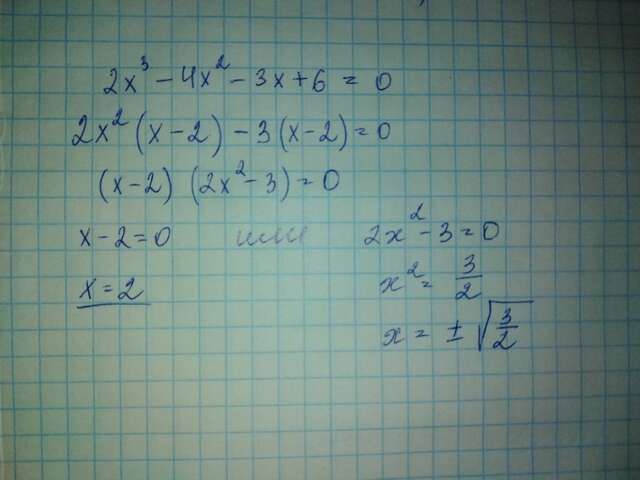 2x³ - 4x² - 3x + 6 = 0
2x² (x - 2) - 3 (x - 2) = 0
(x - 2) (2x² - 3) = 0
x - 2 = 0 или 2x² - 3 = 0
x = 2 x² = 3/2
x = ± √(3/2)